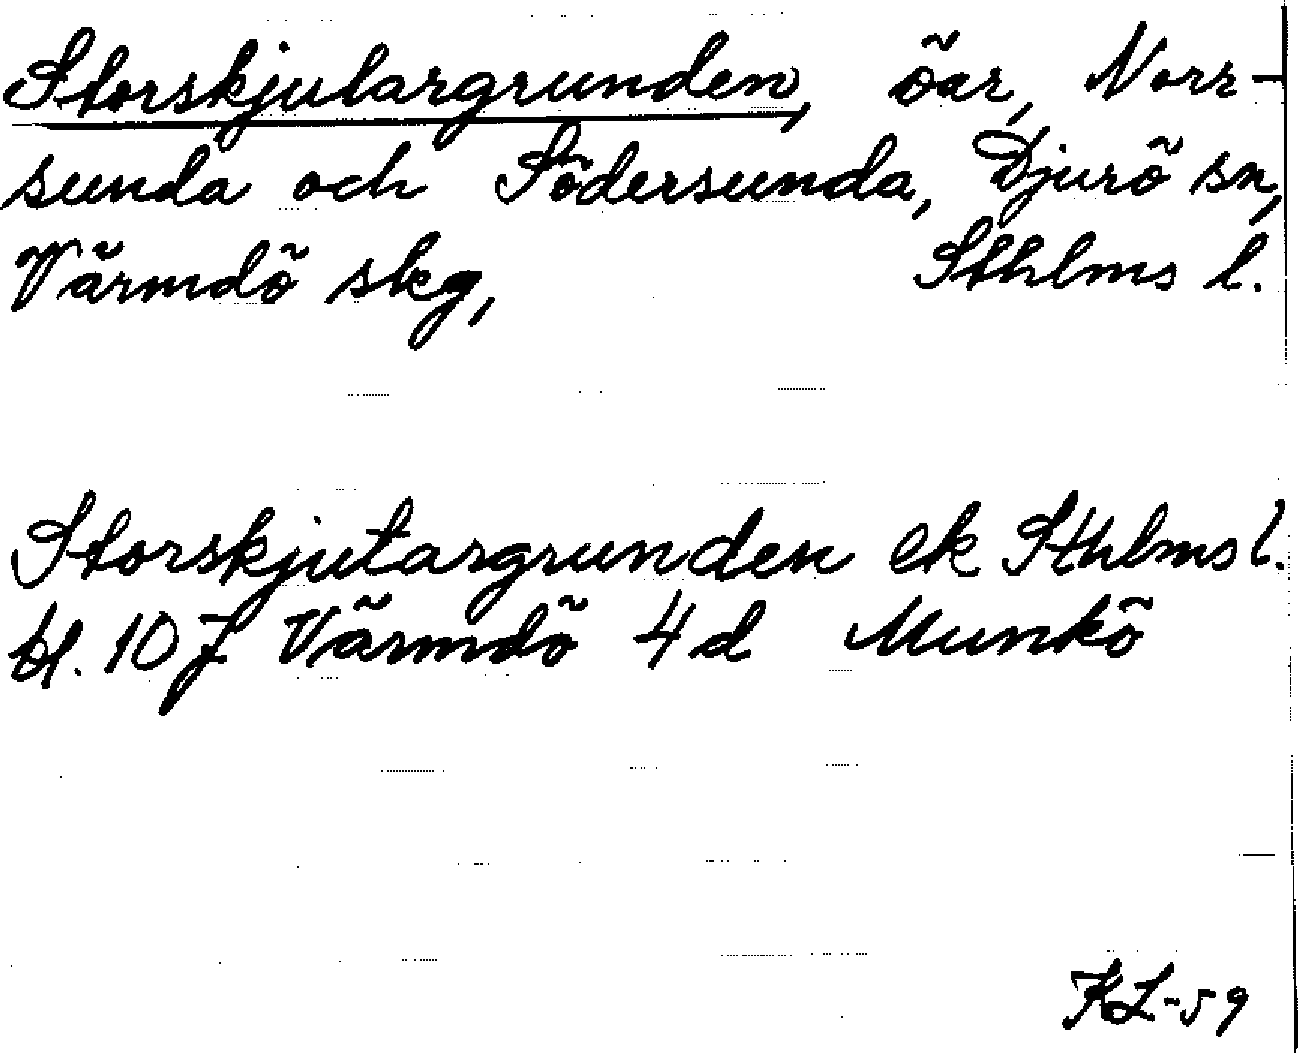 Storskjutargrunden, öar, Norr-
sunda och Södersunda, Djurö sn,
Värmdö skg, Sthlms l.
Storskjutargrunden ek Sthlms l.
bl. 10 J Värmdö 4 d Munkö
KL-59